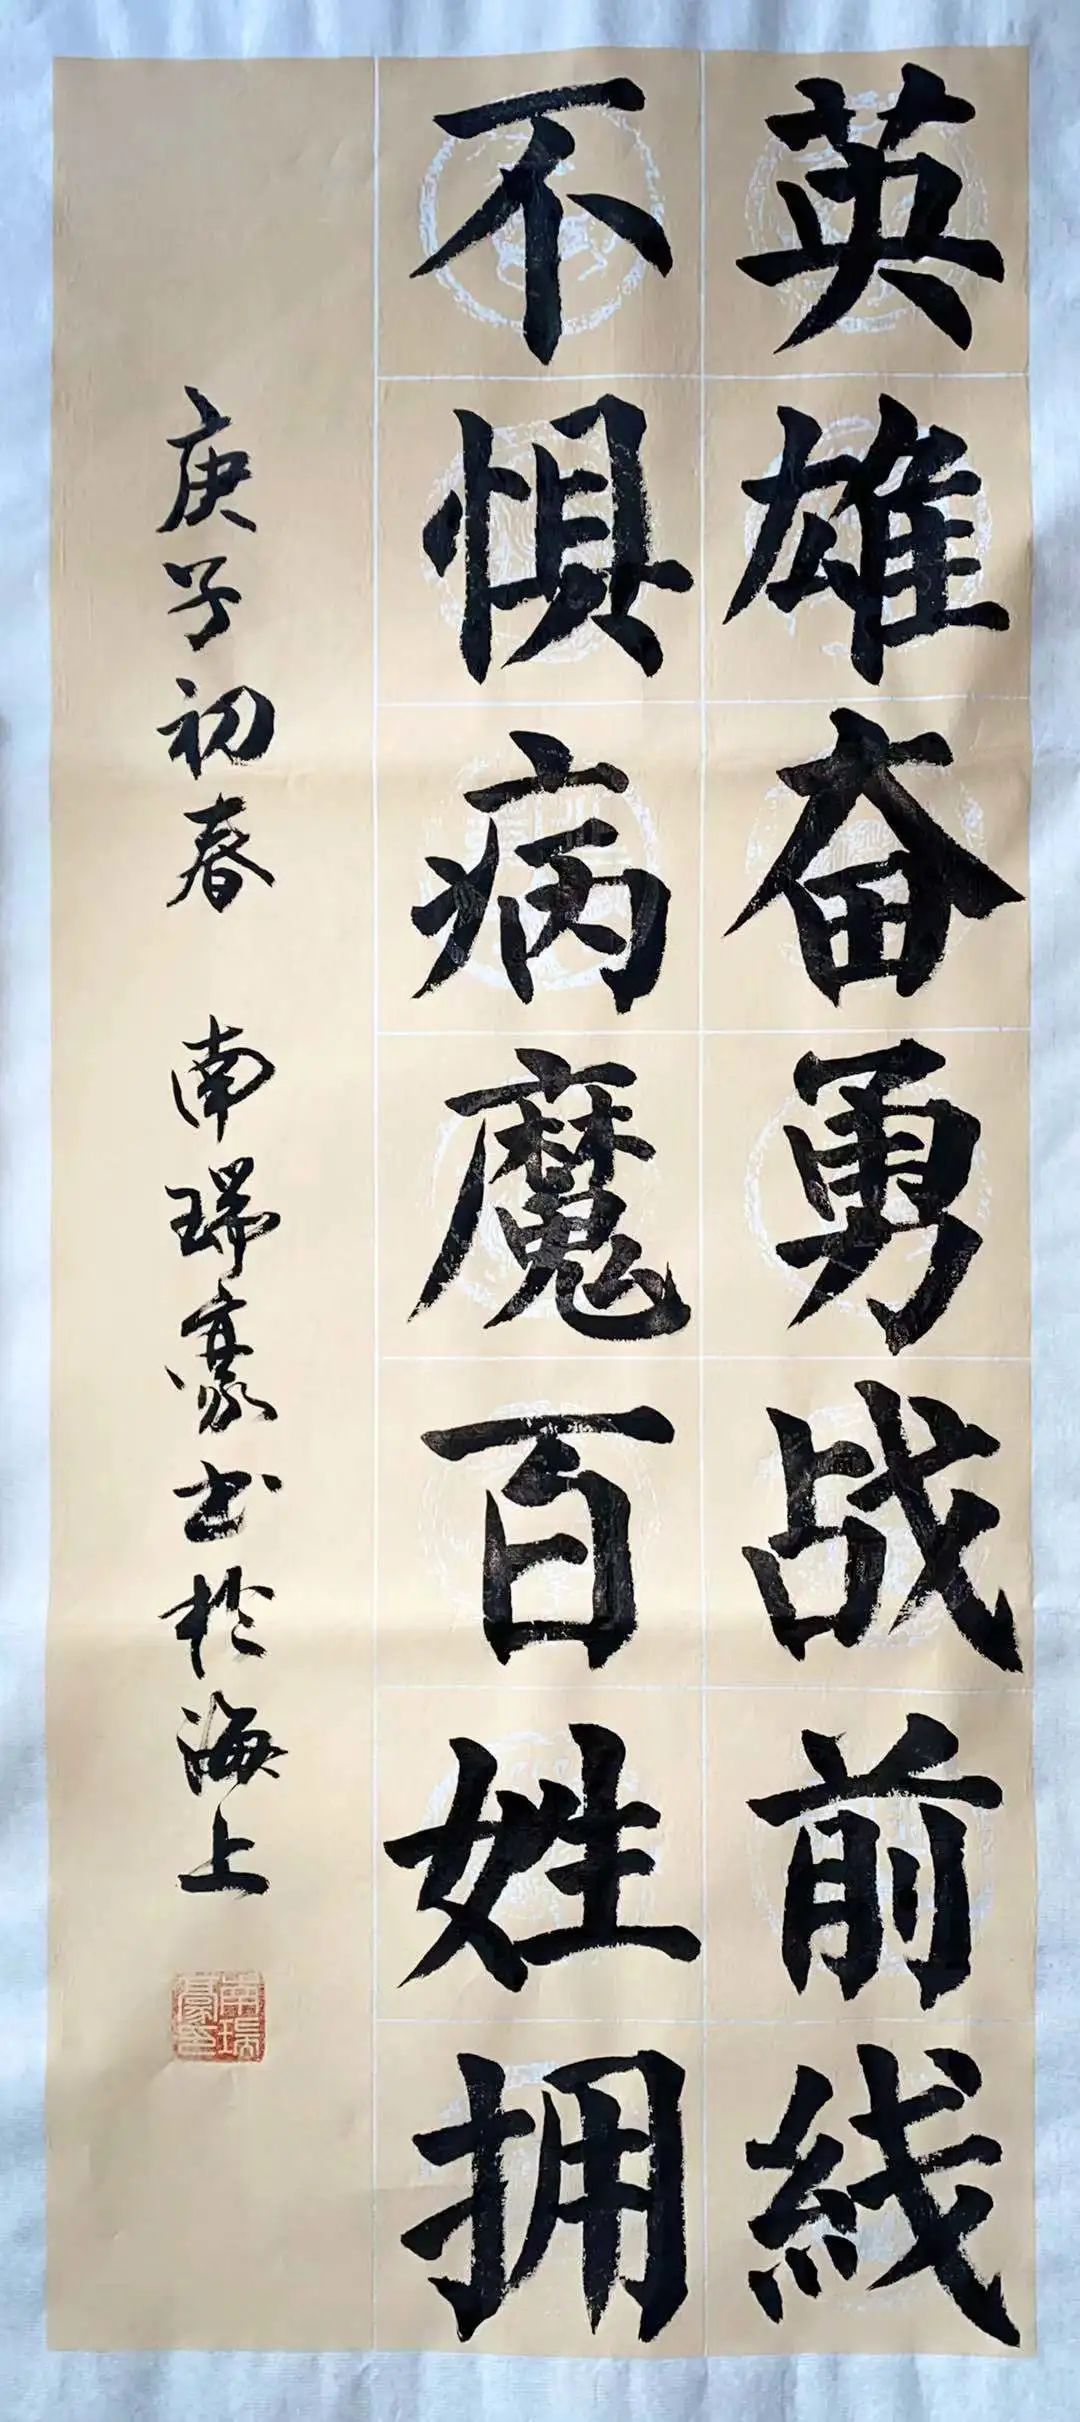 英雄奋勇战前线
不惧病魔百姓拥
庚子初春 南瑞豪书於海上
南瑞豪印